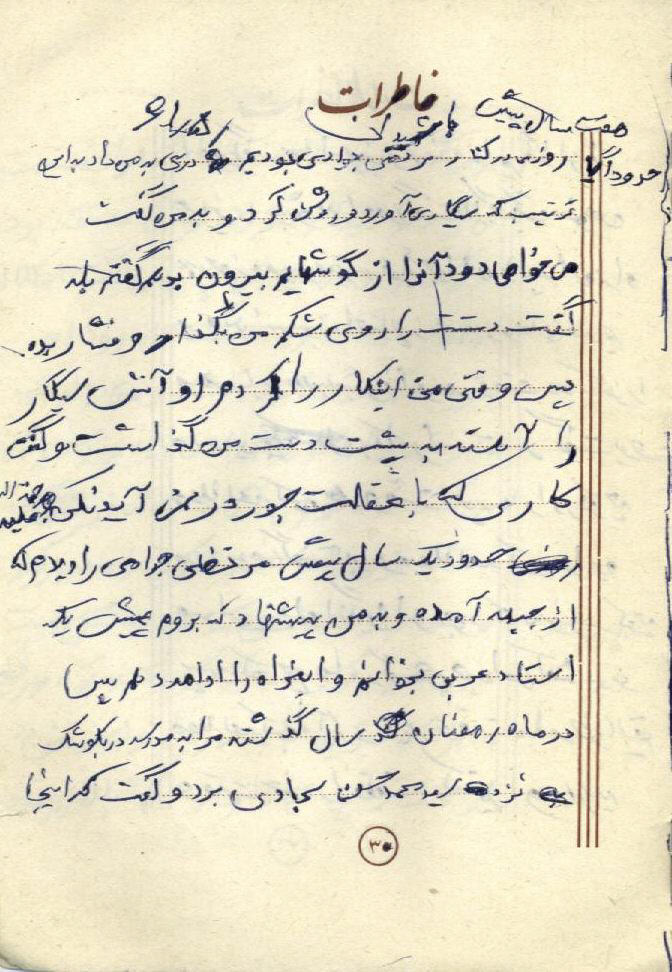 خاطرات
هفت سال پیش
حدوداً روزی در کنار مرتضی جوادی بودیم درسی به من داد به این
ترتیب که سیگاری آورد و روشن کرد و به من گفت
می‌خواهی دود آنرا از گوشهایم بیرون بدهم گفتم بله
گفت دستت را روی شکم من بگذار و فشار بده.
پس وقتی من اینکار را کردم او آتش سیگار
را آهسته به پشت دست من گذاشت و گفت
کاری که با عقلت جور در نمی آید نکن
حدود یک سال پیش مرتضی جوادی را دیدم که
از جبهه آمده و به من پیشنهاد که بروم پیش یک
استاد عربی بخوانم و اینراه را ادامه دهم پس
در ماه رمضان سال گذشته مرا به مدرسه در
نزد سید محمد سجادی برد و گفت که اینجا
۳۰